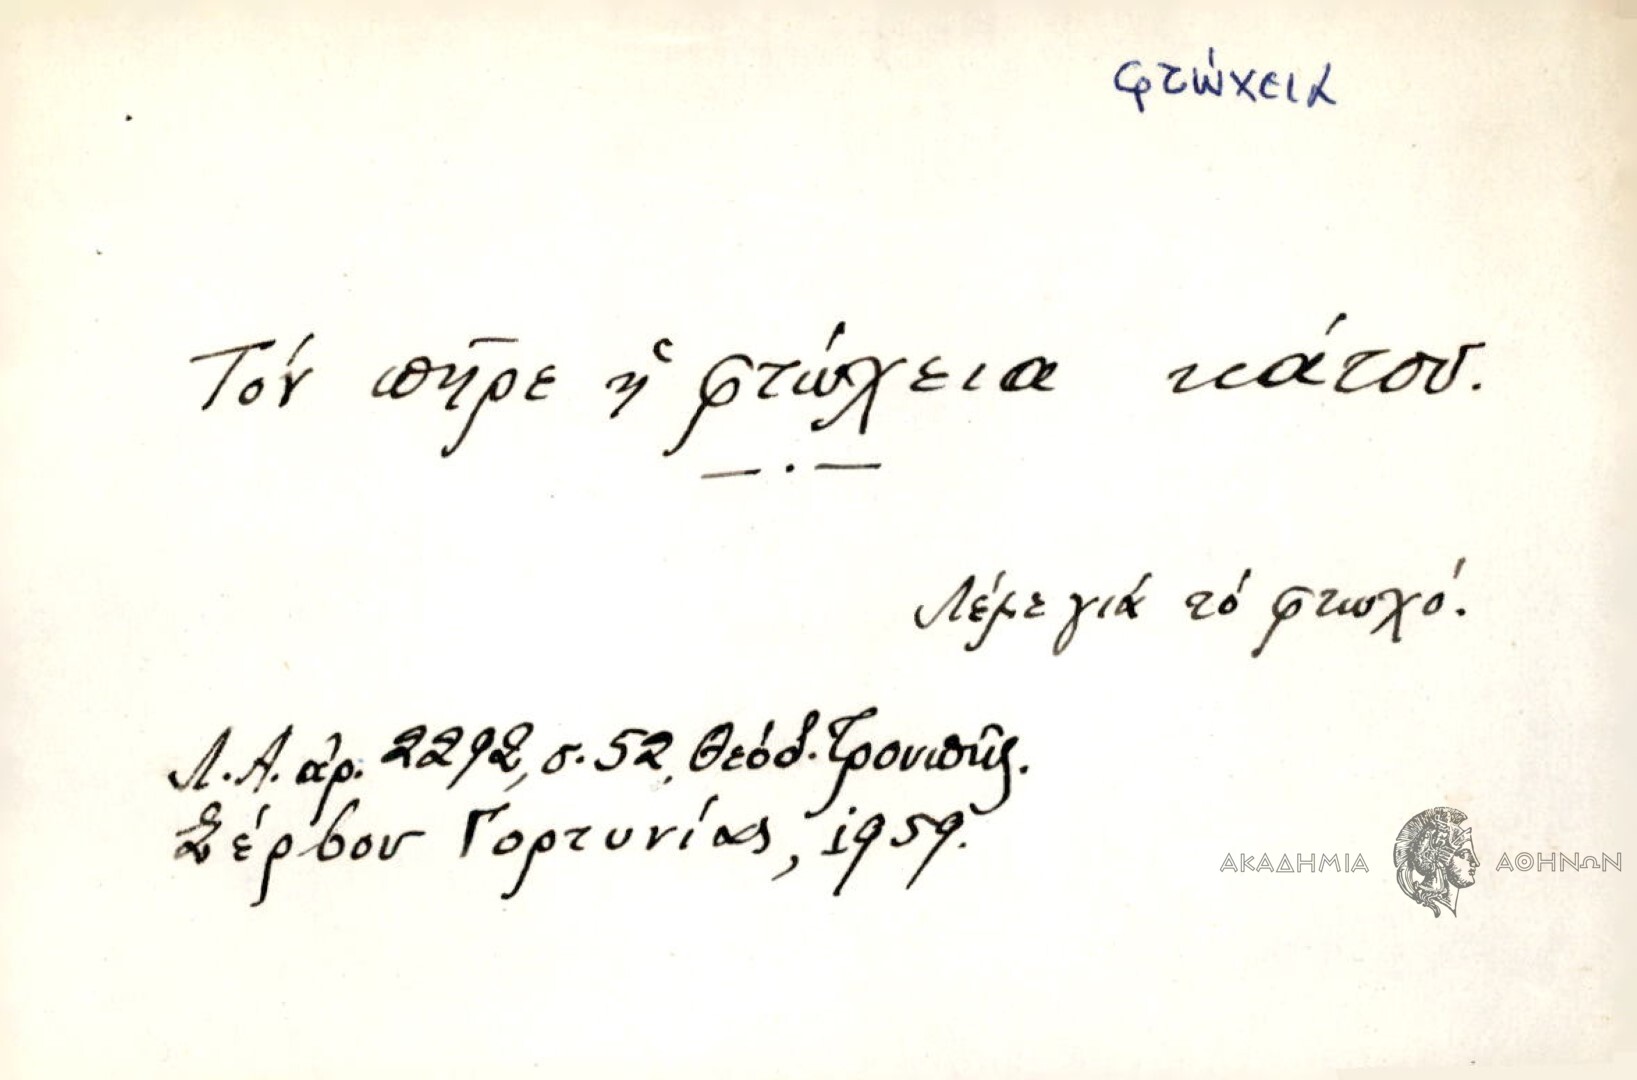 φτώχεια
Τόν πῆρε ἡ φτώχεια κάτου.
Λέμε γιά τό φτωχό.
Λ.Α. ἀρ. 2292, σ. 52, Θεόδ. Τρουπῆς.
Σέρβου Γορτυνίας, 1959.
ΑΚΑΔΗΜΙΑ ΑΘΗΝΩΝ